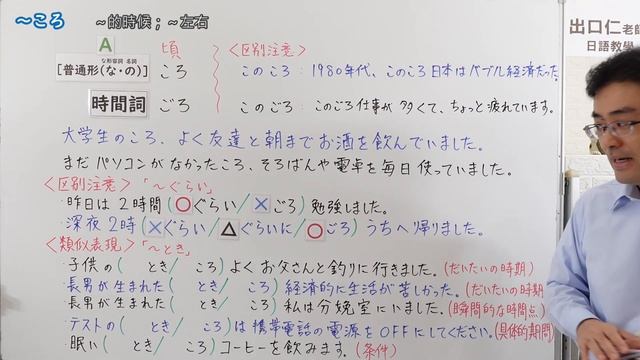 ～ころ ～的時候；～左右
出口仁老師
日語教學
A 頃 <区別注意>
な形容詞 名詞
[普通形(な・の)] ころ このころ：1980年代、このころ日本はバブル経済だった。
時間詞 ごろ このごろ：このごろ仕事が多くて、ちょっと疲れています。
大学生のころ、よく友達と朝までお酒を飲んでいました。
まだパソコンがなかったころ、そろばんや電卓を毎日使っていました。
<区別注意>「～ぐらい」
・昨日は2時間(○ぐらい/×ごろ)勉強しました。
・深夜2時(×ぐらい/△ぐらいに/○ごろ)うちへ帰りました。
<類似表現>「～とき」
・子供の( とき/ ころ)よくお父さんと釣りに行きました。(だいたいの時期)
・長男が生まれた( とき/ ころ)経済的に生活が苦しかった。(だいたいの時期
・長男が生まれた( とき/ ころ)私は分娩室にいました。(瞬間的な時間点)
・テストの( とき/ ころ)は携帯電話の電源をOFFにしてください。(具体的期間)
・眠い( とき/ ころ)コーヒーを飲みます。(条件)